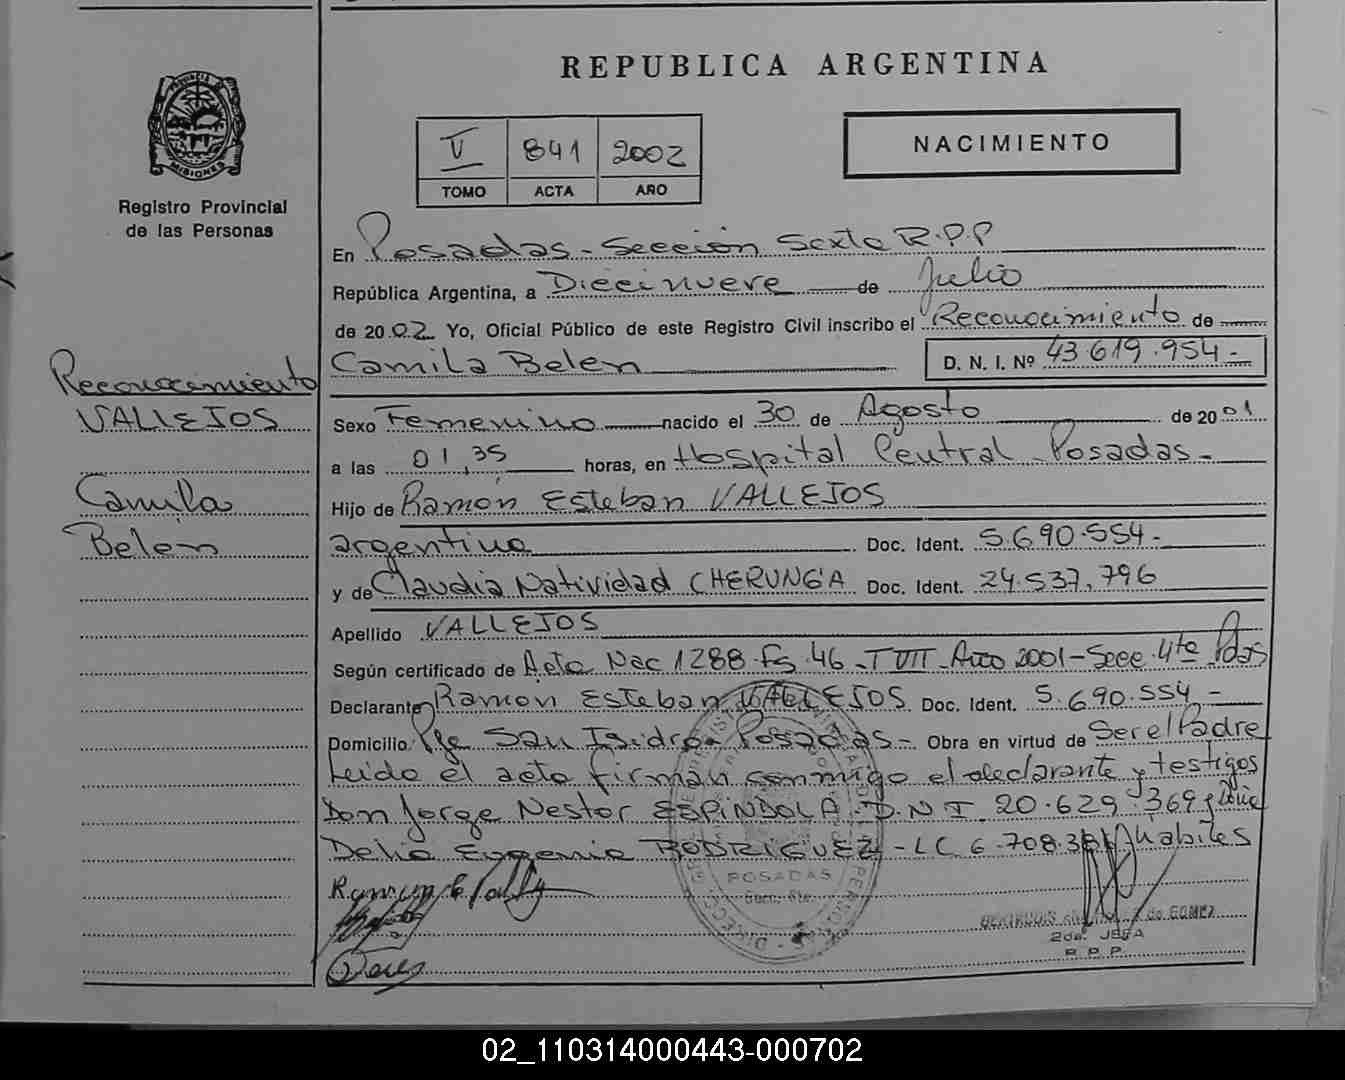 REPUBLICA ARGENTINA
PROVINCIA
MISIONES
Registro Provincial
de las Personas
V 841 2002
TOMO ACTA AÑO
NACIMIENTO
En Posadas - Sección Sexta R.P.P
República Argentina, a Diecinueve de Julio
de 2002 Yo, Oficial Público de este Registro Civil inscribo el Reconocimiento de
Camila Belen D. N. I. Nº 43 619.954-
Reconocimiento
VALLEJOS
Camila
Belen
Sexo Femenino nacido el 30 de Agosto de 2001
a las 01,35 horas, en Hospital Central Posadas-
Hijo de Ramón Esteban VALLEJOS
argentino Doc. Ident. 5.690.554-
y de Claudia Natividad CHERUNGA Doc. Ident. 24.537,796
Apellido VALLEJOS
Según certificado de Acta Nac 1288 Fs. 46 - T VII - Año 2001 - Secc. 4ta Pdas
Declarante Ramon Esteban VALLEJOS Doc. Ident. 5.690.554-
Domicilio Pje San Isidro - Posadas - Obra en virtud de Ser el Padre
Leido el acta firman conmigo el declarante y testigos
Don Jorge Nestor ESPINDOLA D.N.I. 20.629.369 y Doña
Delia Eugenia RODRIGUEZ - LC 6.708.381 habiles
POSADAS
Secc. 6ta.
de GOMEZ
2da. JEFA
R.P.P.
02_110314000443-000702